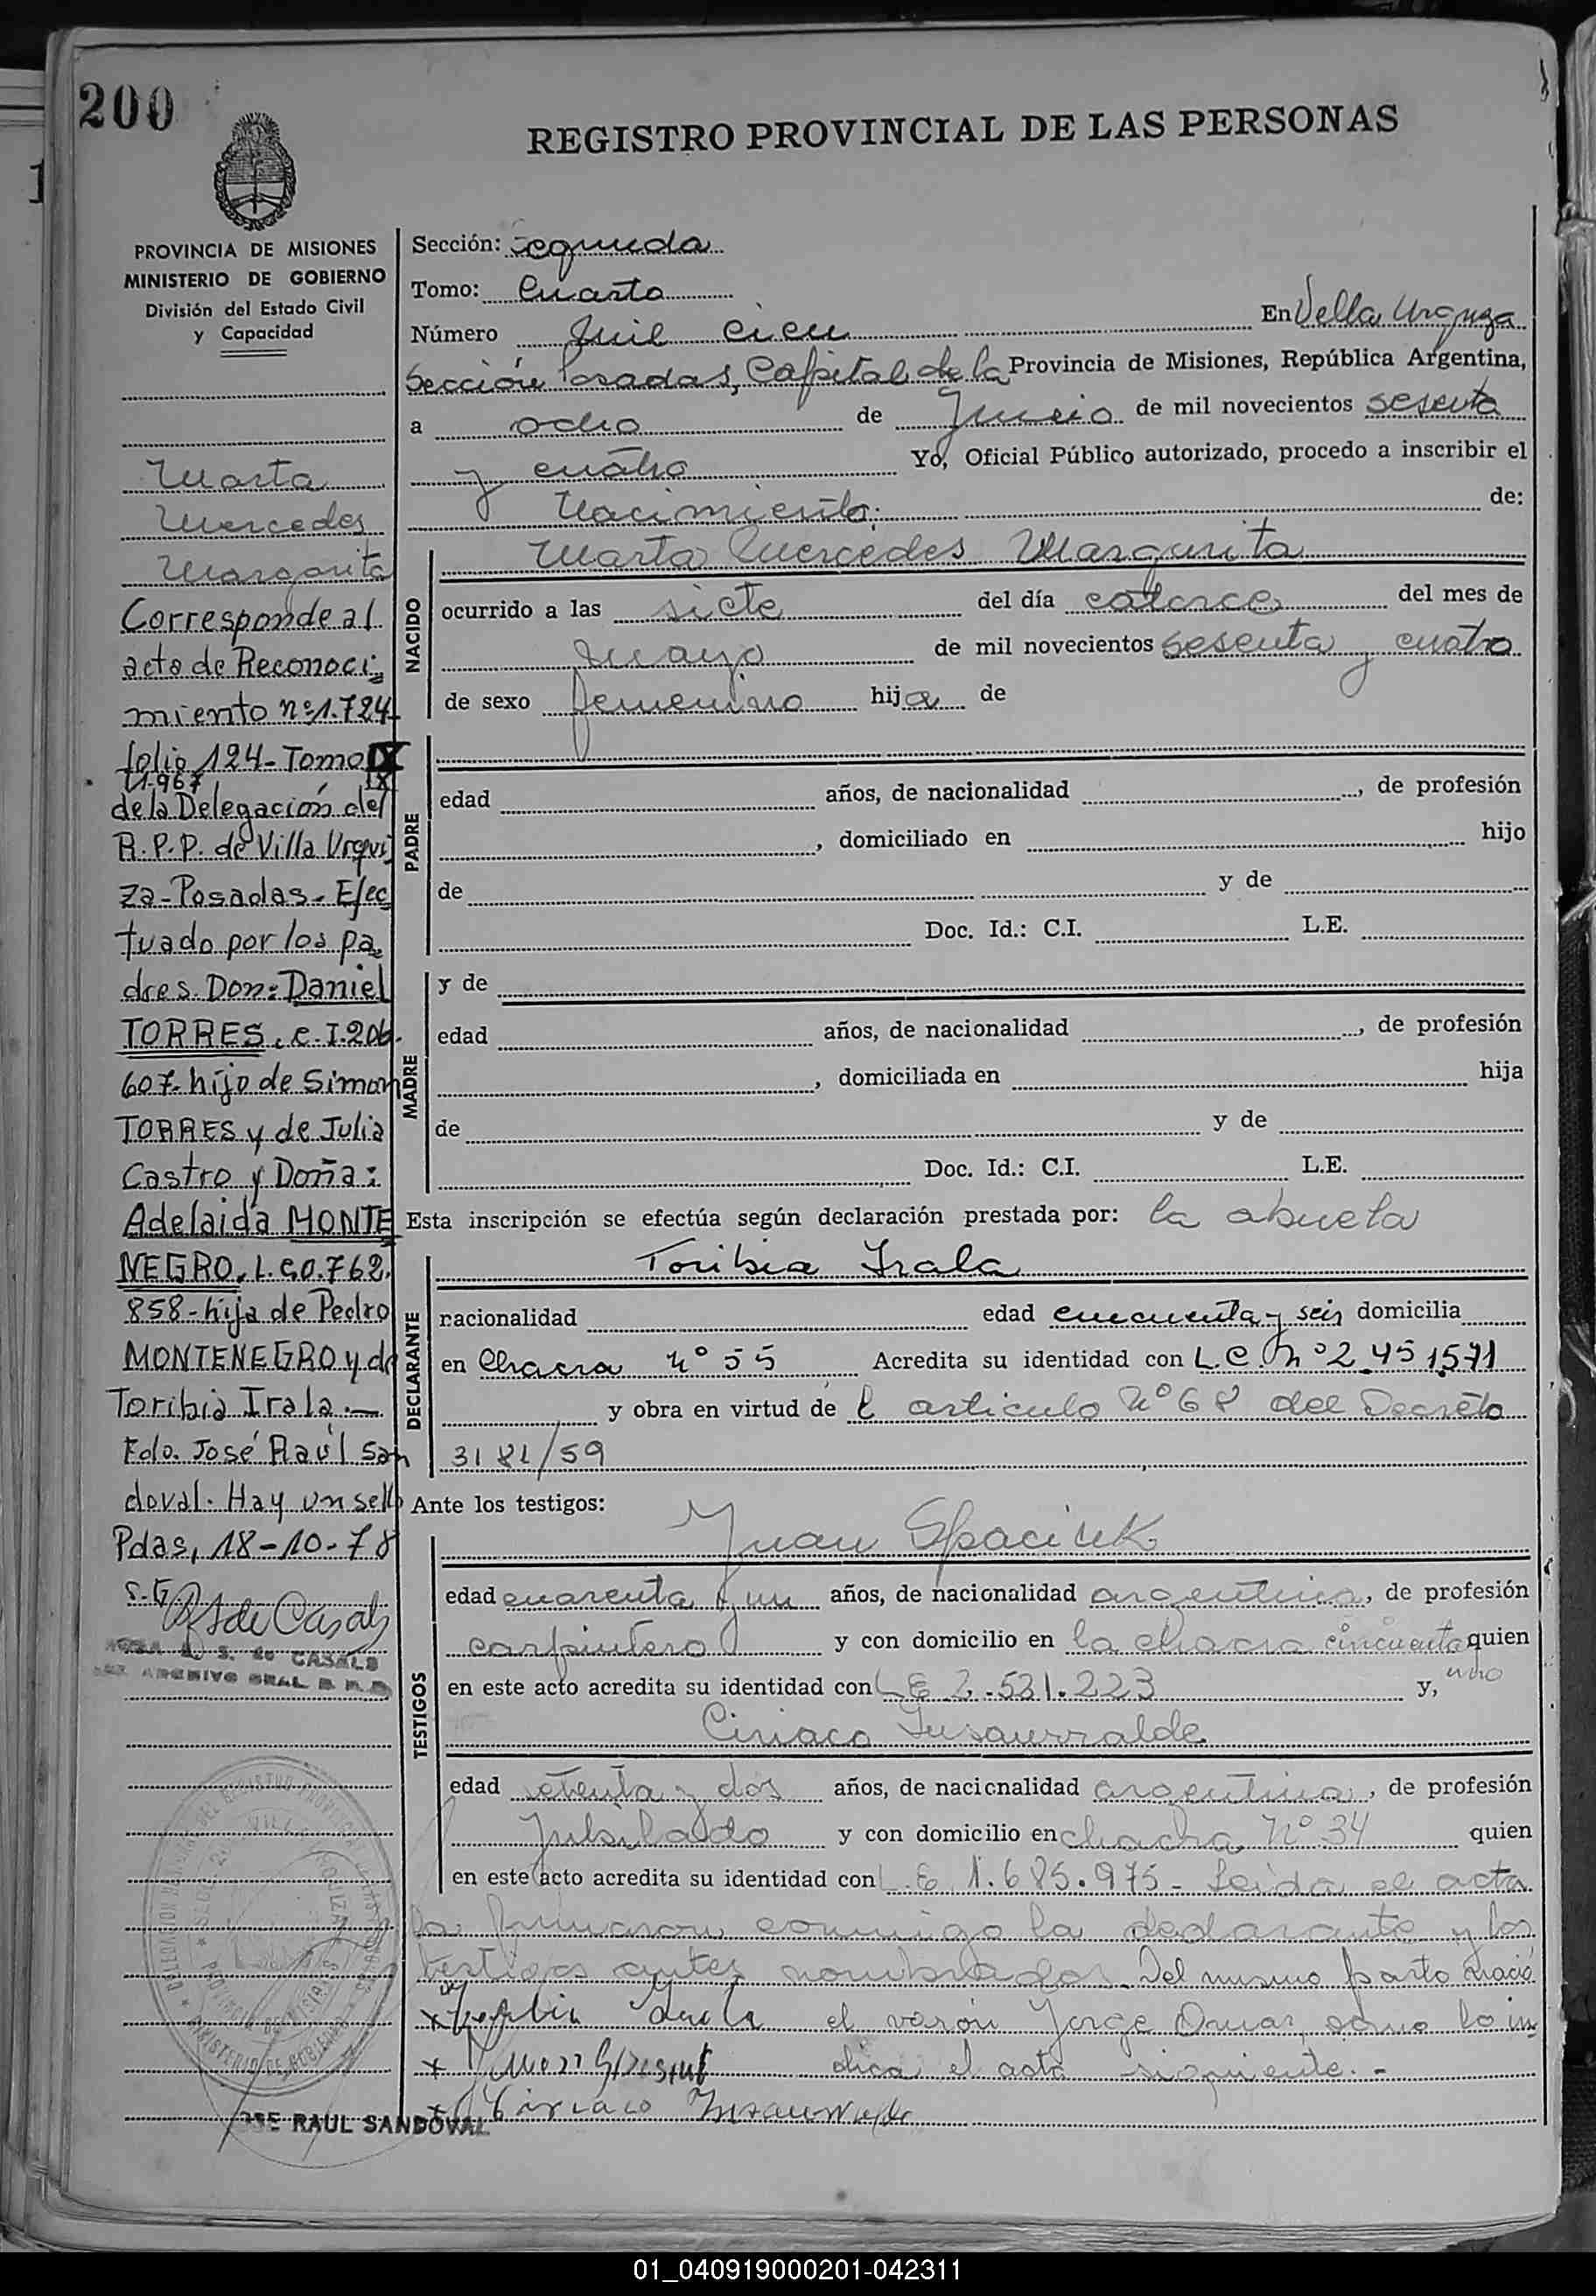 200
REGISTRO PROVINCIAL DE LAS PERSONAS
PROVINCIA DE MISIONES
MINISTERIO DE GOBIERNO
División del Estado Civil
y Capacidad
Marta
Mercedes
Margarita
Corresponde al
acta de Reconoci
miento nº 1.724
folio 124 - Tomo IX
1.967 IX
de la Delegación del
R.P.P. de Villa Urqui
za - Posadas - Efec
tuado por los pa
dres. Don: Daniel
TORRES, C.I. 206.
607. hijo de Simon
TORRES y de Julia
Castro y Doña:
Adelaida MONTE
NEGRO, L.C. 0.762.
858 - hija de Pedro
MONTENEGRO y de
Toribia Irala.—
Fdo. José Raúl San
doval. Hay un sello
Pdas, 18-10-78
S. de CASALS
ARCHIVO GRAL
Sección: Segunda
Tomo: Cuarto
Número mil cien En Villa Urquiza
Sección Posadas, Capital de la Provincia de Misiones, República Argentina,
a ocho de Junio de mil novecientos sesenta
y cuatro Yo, Oficial Público autorizado, procedo a inscribir el
Nacimiento: de:
NACIDO
Marta Mercedes Margarita
ocurrido a las siete del día catorce del mes de
mayo de mil novecientos sesenta y cuatro
de sexo femenino hija de
PADRE
edad años, de nacionalidad , de profesión
, domiciliado en hijo
de y de
Doc. Id.: C.I. L.E.
MADRE
y de
edad años, de nacionalidad , de profesión
, domiciliada en hija
de y de
Doc. Id.: C.I. L.E.
Esta inscripción se efectúa según declaración prestada por: la abuela
DECLARANTE
Toribia Irala
nacionalidad edad cincuenta y seis domicilia
en Chacra nº 55 Acredita su identidad con L.C. nº 2.451.571
y obra en virtud de l articulo Nº 68 del Decreto
3181/59
Ante los testigos:
TESTIGOS
Juan Spaciuk
edad cuarenta y un años, de nacionalidad argentina, de profesión
carpintero y con domicilio en la chacra cincuenta quien
uno
en este acto acredita su identidad con L E 2.531.223 y,
Ciriaco Insaurralde
edad setenta y dos años, de nacionalidad argentina, de profesión
jubilado y con domicilio en chacra Nº 34 quien
en este acto acredita su identidad con L.E 1.685.975 - Leida el acta
la firmaron conmigo la declarante y los
testigos antes nombrados. Del mismo parto nació
el varón Jorge Omar, como lo in
dica el acta siguiente. -
Ciriaco Insaurralde
JOSE RAUL SANDOVAL
01_040919000201-042311